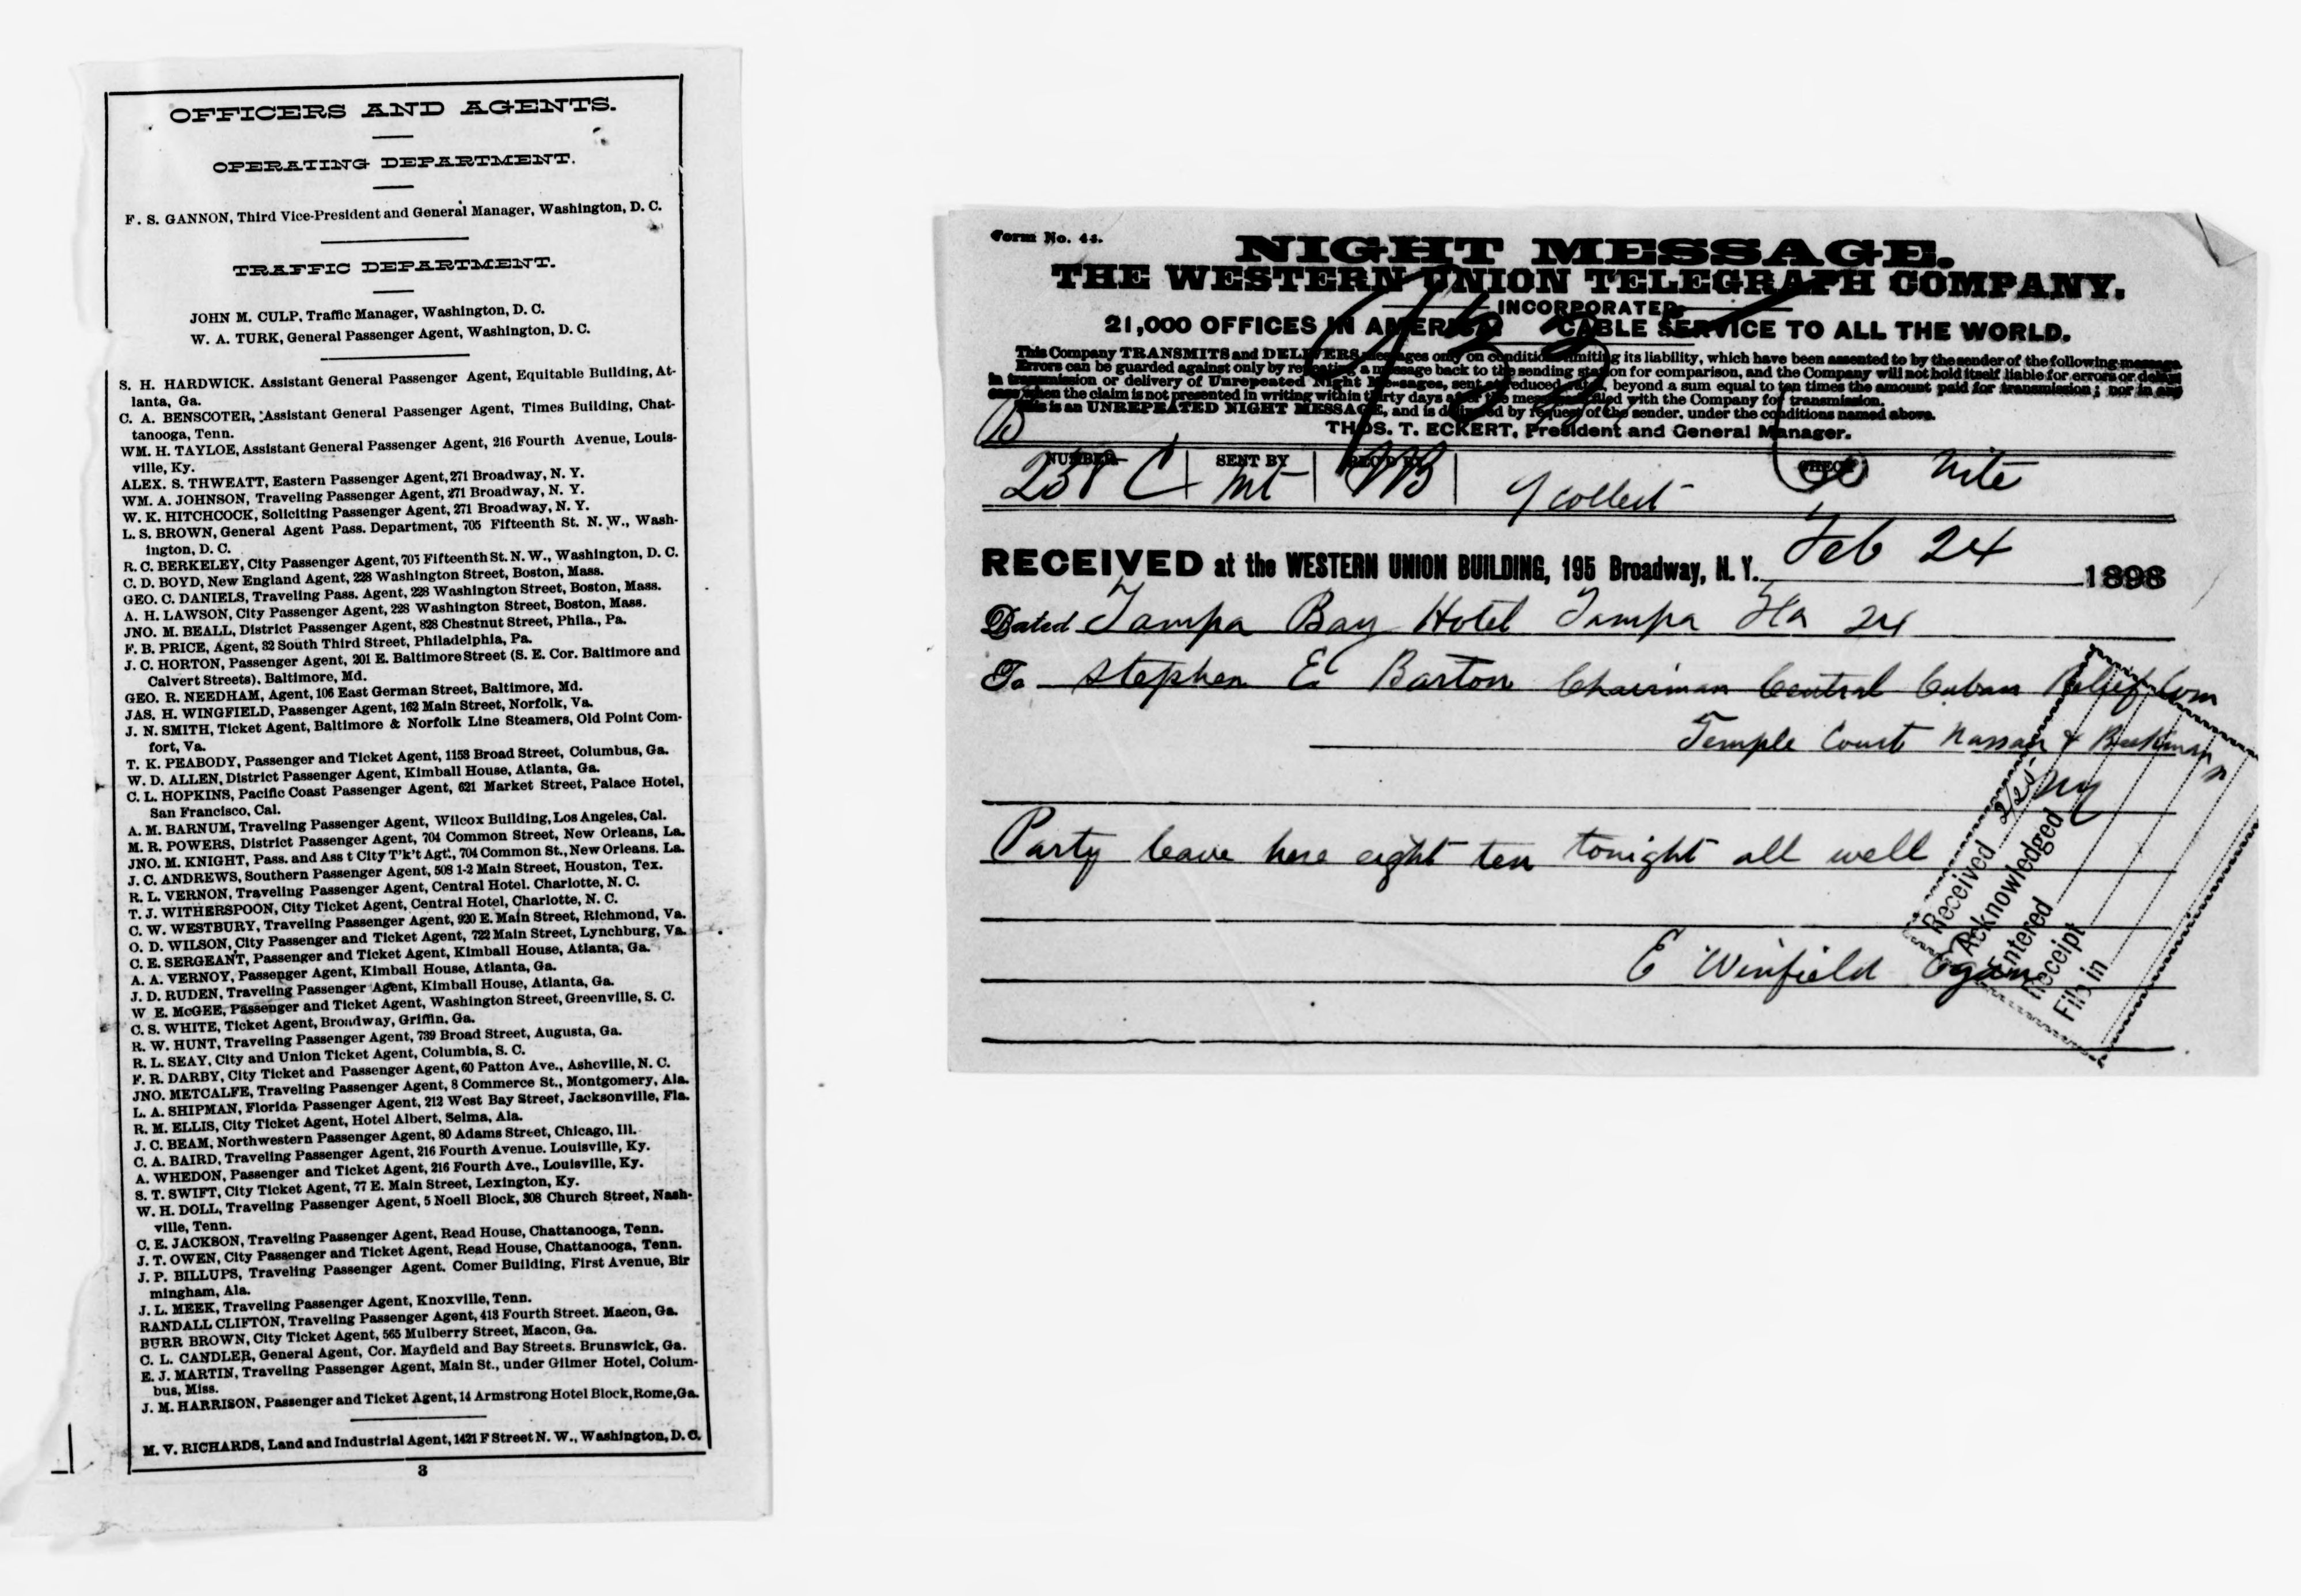 OFFICERS AND AGENTS.
OPERATING DEPARTMENT.
F. S. GANNON, Third Vice-President and General Manager, Washington, D. C.
TRAFFIC DEPARTMENT.
JOHN M. CULP, Traffic Manager, Washington, D. C.
W. A. TURK, General Passenger Agent, Washington, D. C.
S. H. HARDWICK. Assistant General Passenger Agent, Equitable Building, At-
lanta, Ga.
C. A. BENSCOTER, Assistant General Passenger Agent, Times Building, Chat-
tanooga, Tenn.
WM. H. TAYLOE, Assistant General Passenger Agent, 216 Fourth Avenue, Louis-
ville, Ky.
ALEX. S. THWEATT, Eastern Passenger Agent, 271 Broadway, N. Y.
WM. A. JOHNSON, Traveling Passenger Agent, 271 Broadway, N. Y.
W. K. HITCHCOCK, Soliciting Passenger Agent, 271 Broadway, N. Y.
L. S. BROWN, General Agent Pass. Department, 705 Fifteenth St. N. W., Wash-
ington, D. C.
R. C. BERKELEY, City Passenger Agent, 705 Fifteenth St. N. W., Washington, D. C.
C. D. BOYD, New England Agent, 228 Washington Street, Boston, Mass.
GEO. C. DANIELS, Traveling Pass. Agent, 228 Washington Street, Boston, Mass.
A. H. LAWSON, City Passenger Agent, 228 Washington Street, Boston, Mass.
JNO. M. BEALL, District Passenger Agent, 828 Chestnut Street, Phila., Pa.
F. B. PRICE, Agent, 32 South Third Street, Philadelphia, Pa.
J. C. HORTON, Passenger Agent, 201 E. Baltimore Street (S. E. Cor. Baltimore and
Calvert Streets), Baltimore, Md.
GEO. R. NEEDHAM, Agent, 106 East German Street, Baltimore, Md.
JAS. H. WINGFIELD, Passenger Agent, 162 Main Street, Norfolk, Va.
J. N. SMITH, Ticket Agent, Baltimore & Norfolk Line Steamers, Old Point Com-
fort, Va.
T. K. PEABODY, Passenger and Ticket Agent, 1158 Broad Street, Columbus, Ga.
W. D. ALLEN, District Passenger Agent, Kimball House, Atlanta, Ga.
C. L. HOPKINS, Pacific Coast Passenger Agent, 621 Market Street, Palace Hotel,
San Francisco, Cal.
A. M. BARNUM, Traveling Passenger Agent, Wilcox Building, Los Angeles, Cal.
M. R. POWERS, District Passenger Agent, 704 Common Street, New Orleans, La.
JNO. M. KNIGHT, Pass. and Ass t City T'k't Agt., 704 Common St., New Orleans. La.
J. C. ANDREWS, Southern Passenger Agent, 508 1-2 Main Street, Houston, Tex.
R. L. VERNON, Traveling Passenger Agent, Central Hotel. Charlotte, N. C.
T. J. WITHERSPOON, City Ticket Agent, Central Hotel, Charlotte, N. C.
C. W. WESTBURY, Traveling Passenger Agent, 920 E. Main Street, Richmond, Va.
O. D. WILSON, City Passenger and Ticket Agent, 722 Main Street, Lynchburg, Va.
C. E. SERGEANT, Passenger and Ticket Agent, Kimball House, Atlanta, Ga.
A. A. VERNOY, Passenger Agent, Kimball House, Atlanta, Ga.
J. D. RUDEN, Traveling Passenger Agent, Kimball House, Atlanta, Ga.
W E. McGEE, Passenger and Ticket Agent, Washington Street, Greenville, S. C.
C. S. WHITE, Ticket Agent, Broadway, Griffin, Ga.
R. W. HUNT, Traveling Passenger Agent, 739 Broad Street, Augusta, Ga.
R. L. SEAY, City and Union Ticket Agent, Columbia, S. C.
F. R. DARBY, City Ticket and Passenger Agent, 60 Patton Ave., Asheville, N. C.
JNO. METCALFE, Traveling Passenger Agent, 8 Commerce St., Montgomery, Ala.
L. A. SHIPMAN, Florida Passenger Agent, 212 West Bay Street, Jacksonville, Fla.
R. M. ELLIS, City Ticket Agent, Hotel Albert, Selma, Ala.
J. C. BEAM, Northwestern Passenger Agent, 80 Adams Street, Chicago, Ill.
C. A. BAIRD, Traveling Passenger Agent, 216 Fourth Avenue. Louisville, Ky.
A. WHEDON, Passenger and Ticket Agent, 216 Fourth Ave., Louisville, Ky.
S. T. SWIFT, City Ticket Agent, 77 E. Main Street, Lexington, Ky.
W. H. DOLL, Traveling Passenger Agent, 5 Noell Block, 308 Church Street, Nash-
ville, Tenn.
C. E. JACKSON, Traveling Passenger Agent, Read House, Chattanooga, Tenn.
J. T. OWEN, City Passenger and Ticket Agent, Read House, Chattanooga, Tenn.
J. P. BILLUPS, Traveling Passenger Agent. Comer Building, First Avenue, Bir
mingham, Ala.
J. L. MEEK, Traveling Passenger Agent, Knoxville, Tenn.
RANDALL CLIFTON, Traveling Passenger Agent, 413 Fourth Street. Macon, Ga.
BURR BROWN, City Ticket Agent, 565 Mulberry Street, Macon, Ga.
C. L. CANDLER, General Agent, Cor. Mayfield and Bay Streets. Brunswick, Ga.
E. J. MARTIN, Traveling Passenger Agent, Main St., under Gilmer Hotel, Colum-
bus, Miss.
J. M. HARRISON, Passenger and Ticket Agent, 14 Armstrong Hotel Block, Rome, Ga.
M. V. RICHARDS, Land and Industrial Agent, 1421 F Street N. W., Washington, D. C.
3
Form No. 44.
NIGHT MESSAGE.
THE WESTERN UNION TELEGRAPH COMPANY.
INCORPORATED
21,000 OFFICES IN AMERICA. CABLE SERVICE TO ALL THE WORLD.
This Company TRANSMITS and DELIVERS messages only on conditions limiting its liability, which have been assented to by the sender of the following message.
Errors can be guarded against only by repeating a message back to the sending station for comparison, and the Company will not hold itself liable for errors or delays
in transmission or delivery of Unrepeated Night Messages, sent at reduced rates, beyond a sum equal to ten times the amount paid for transmission; nor in any
case when the claim is not presented in writing within thirty days after the message is filed with the Company for transmission.
This is an UNREPEATED NIGHT MESSAGE, and is delivered by request of the sender, under the conditions named above.
THOS. T. ECKERT, President and General Manager.
NUMBER SENT BY REC'D BY CHECK
C 9 collect Nite
RECEIVED at the WESTERN UNION BUILDING, 195 Broadway, N. Y. Feb 24 1898
Dated Tampa Bay Hotel Tampa Fla 24
To Stephen E Barton Chairman Central Cuban Relief Com
Temple Court Nassau & Beekman
NY
Party leave here eight ten tonight all well
E Winfield Egan
Received 2/25
Acknowledged
Entered
Receipt
File in